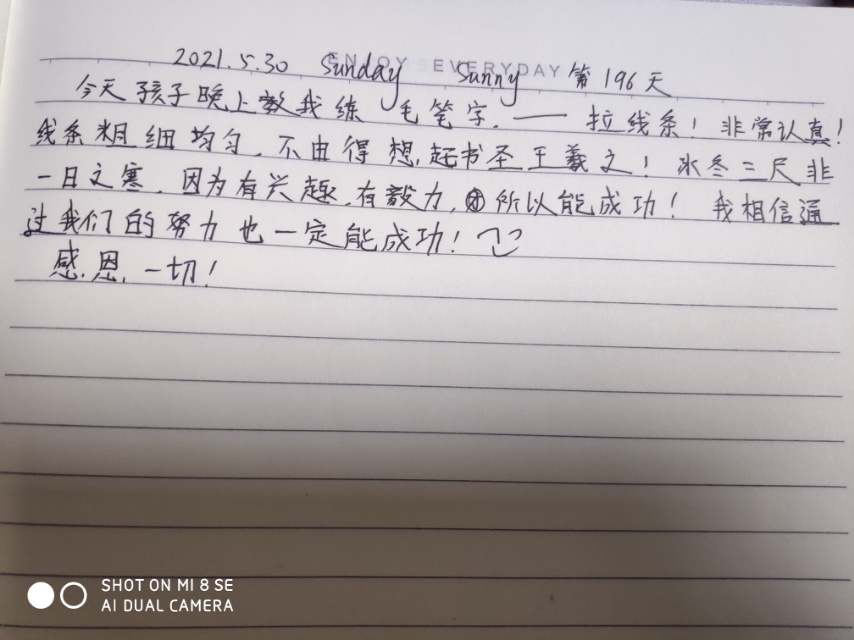 ENJOY EVERYDAY
2021.5.30 Sunday Sunny 第196天
今天孩子晚上教我练毛笔字.——拉线条！非常认真！
线条粗细均匀，不由得想起书圣王羲之！冰冬三尺非
一日之寒，因为有兴趣，有毅力，所以能成功！我相信通
过我们的努力也一定能成功！
感恩一切！
SHOT ON MI 8 SE
AI DUAL CAMERA